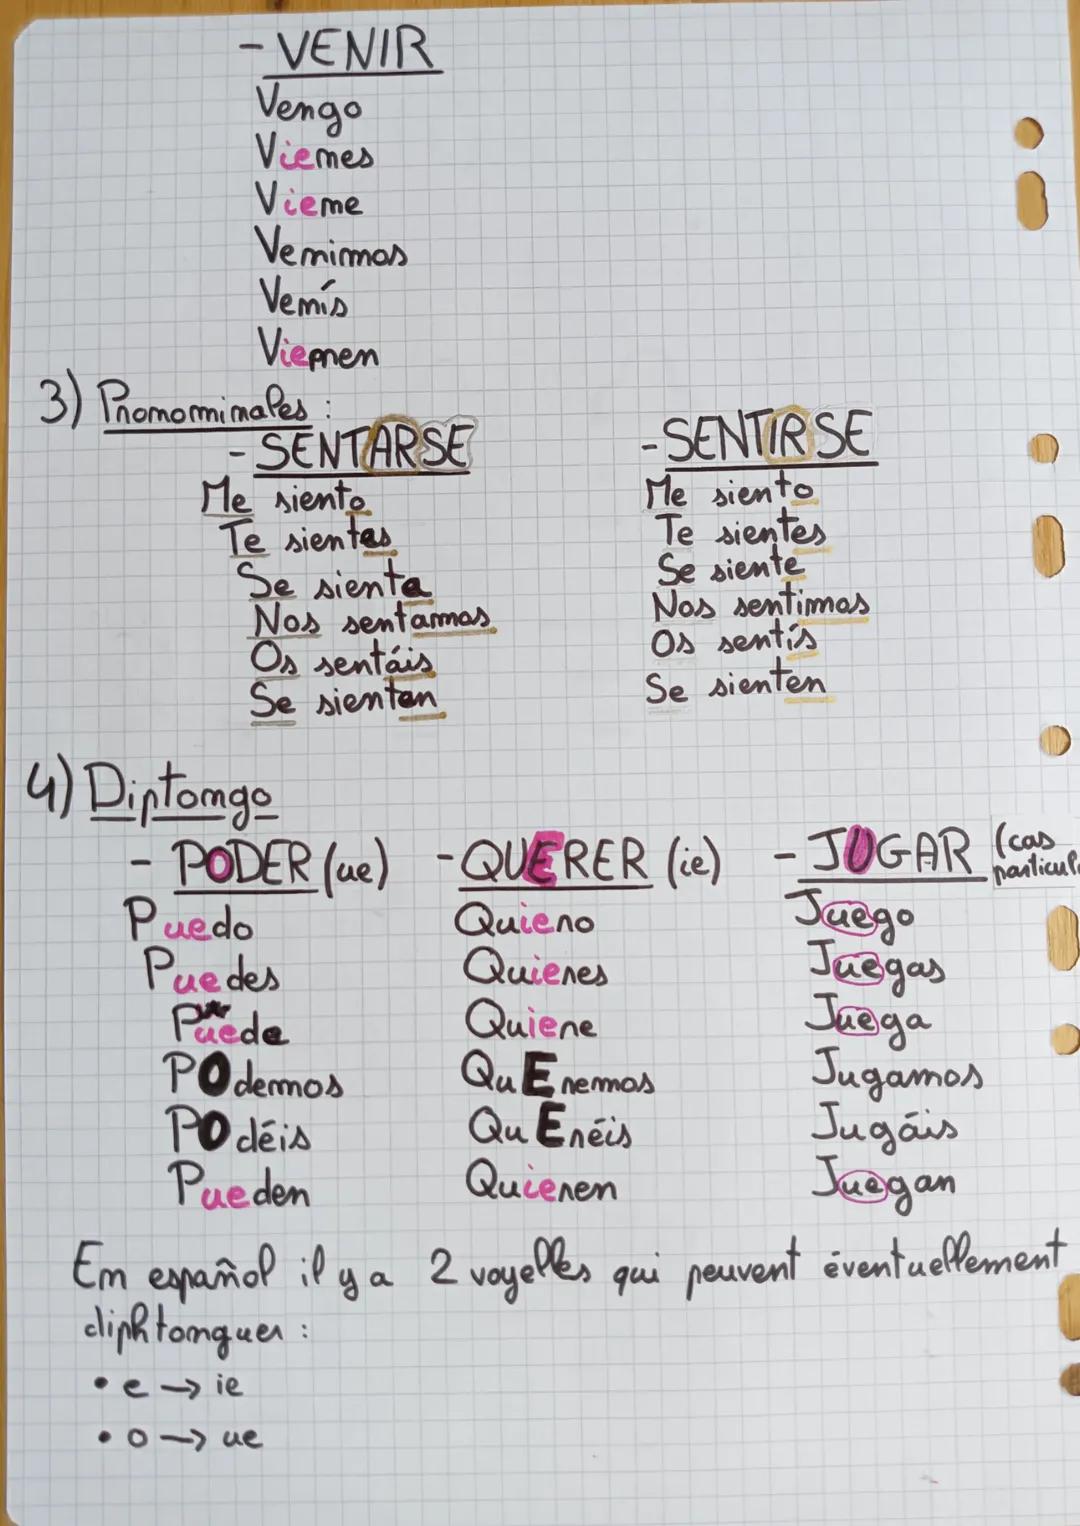 - VENIR
Vengo
Vienes
Viene
Venimos
Venís
Vienen
3) Pronominales :
- SENTARSE
Me siento
Te sientas
Se sienta
Nos sentamos
Os sentáis
Se sientan
- SENTIRSE
Me siento
Te sientes
Se siente
Nos sentimos
Os sentís
Se sienten
4) Diptongo
- PODER (ue)
Puedo
Puedes
Puede
POdemos
POdéis
Pueden
- QUERER (ie)
Quiero
Quieres
Quiere
QuEremos
QuEréis
Quieren
- JUGAR (cas
particul
Juego
Juegas
Juega
Jugamos
Jugáis
Juegan
En español il y a 2 voyelles qui peuvent éventuellement
diphtonguer :
• e → ie
• o → ue